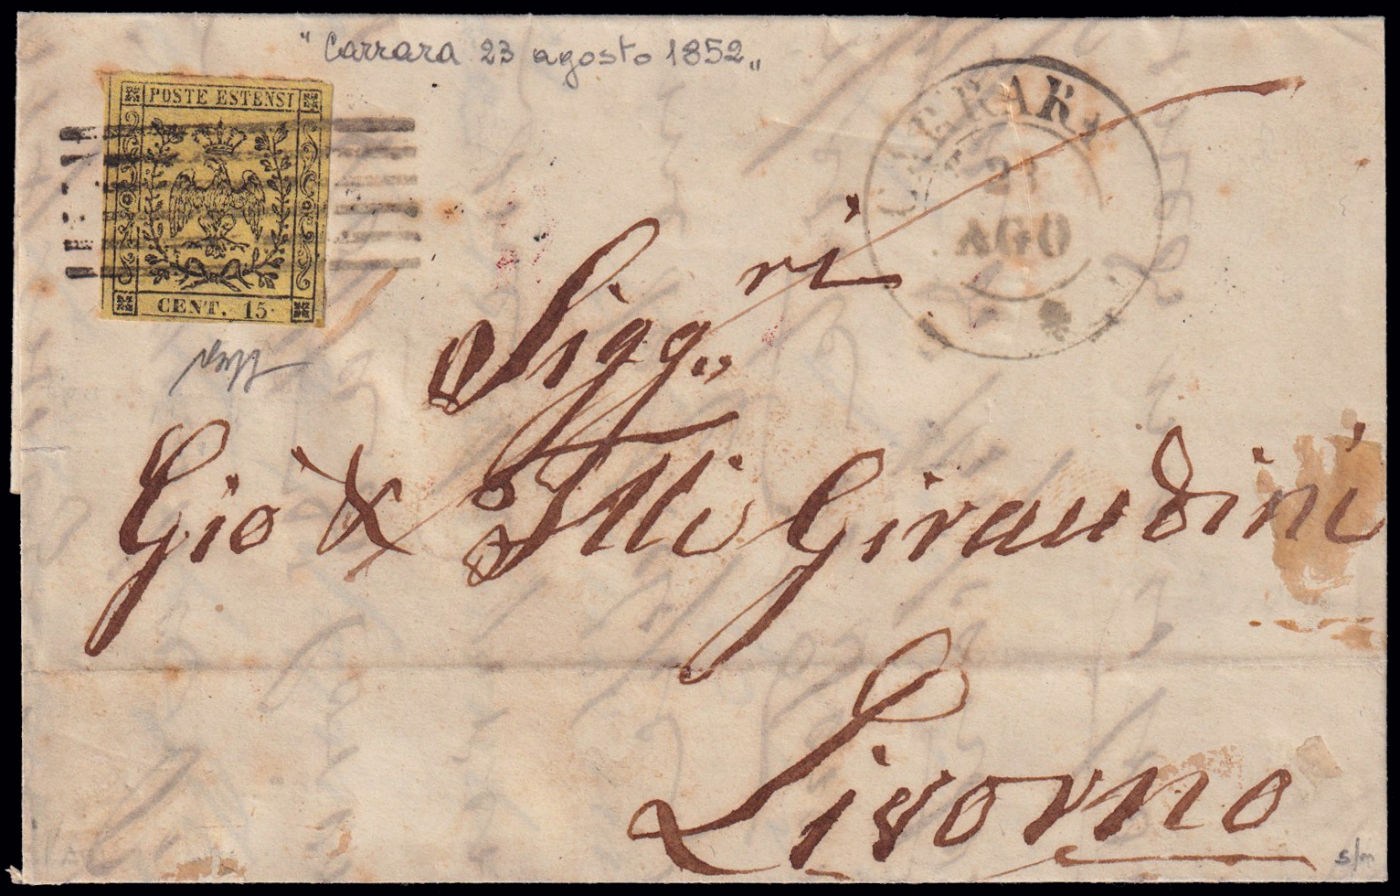 "Carrara 23 agosto 1852"
POSTE ESTENSI
CENT. 15.
CARRARA
23
AGO
Sigg.ri
Gio & Flli Giraudini
Livorno